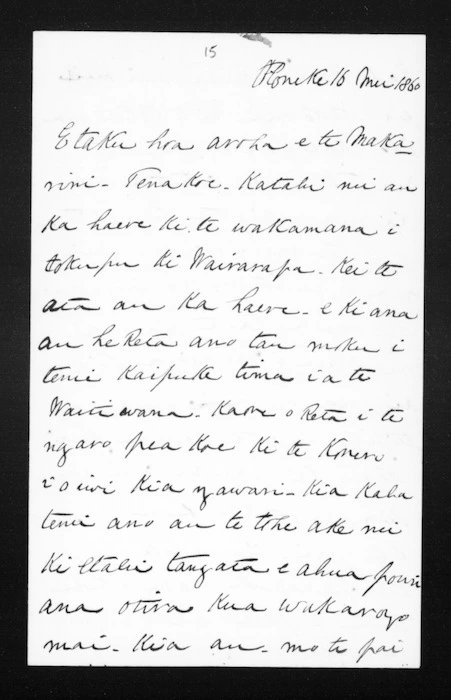 15
Poneke 16 Mei 1860
E taku hoa aroha e te Maka
rini - Tena koe - Katahi nei au
ka haere ki te wakamana i
toku pu ki Wairarapa - Kei te
ata au ka haere - e ki ana
au he Reta ano tau moku i
tenei kaipuke tima i a te
Waitiwana - Kaore o Reta i te
ngaro pea koe ki te Korero
i o iwi kia ngawari - Kia Kaha
tenei ano au te tohe ake nei
ki etahi tangata e ahua pouri
ana otira kua wakarogo
mai - Kia au - mo te pai